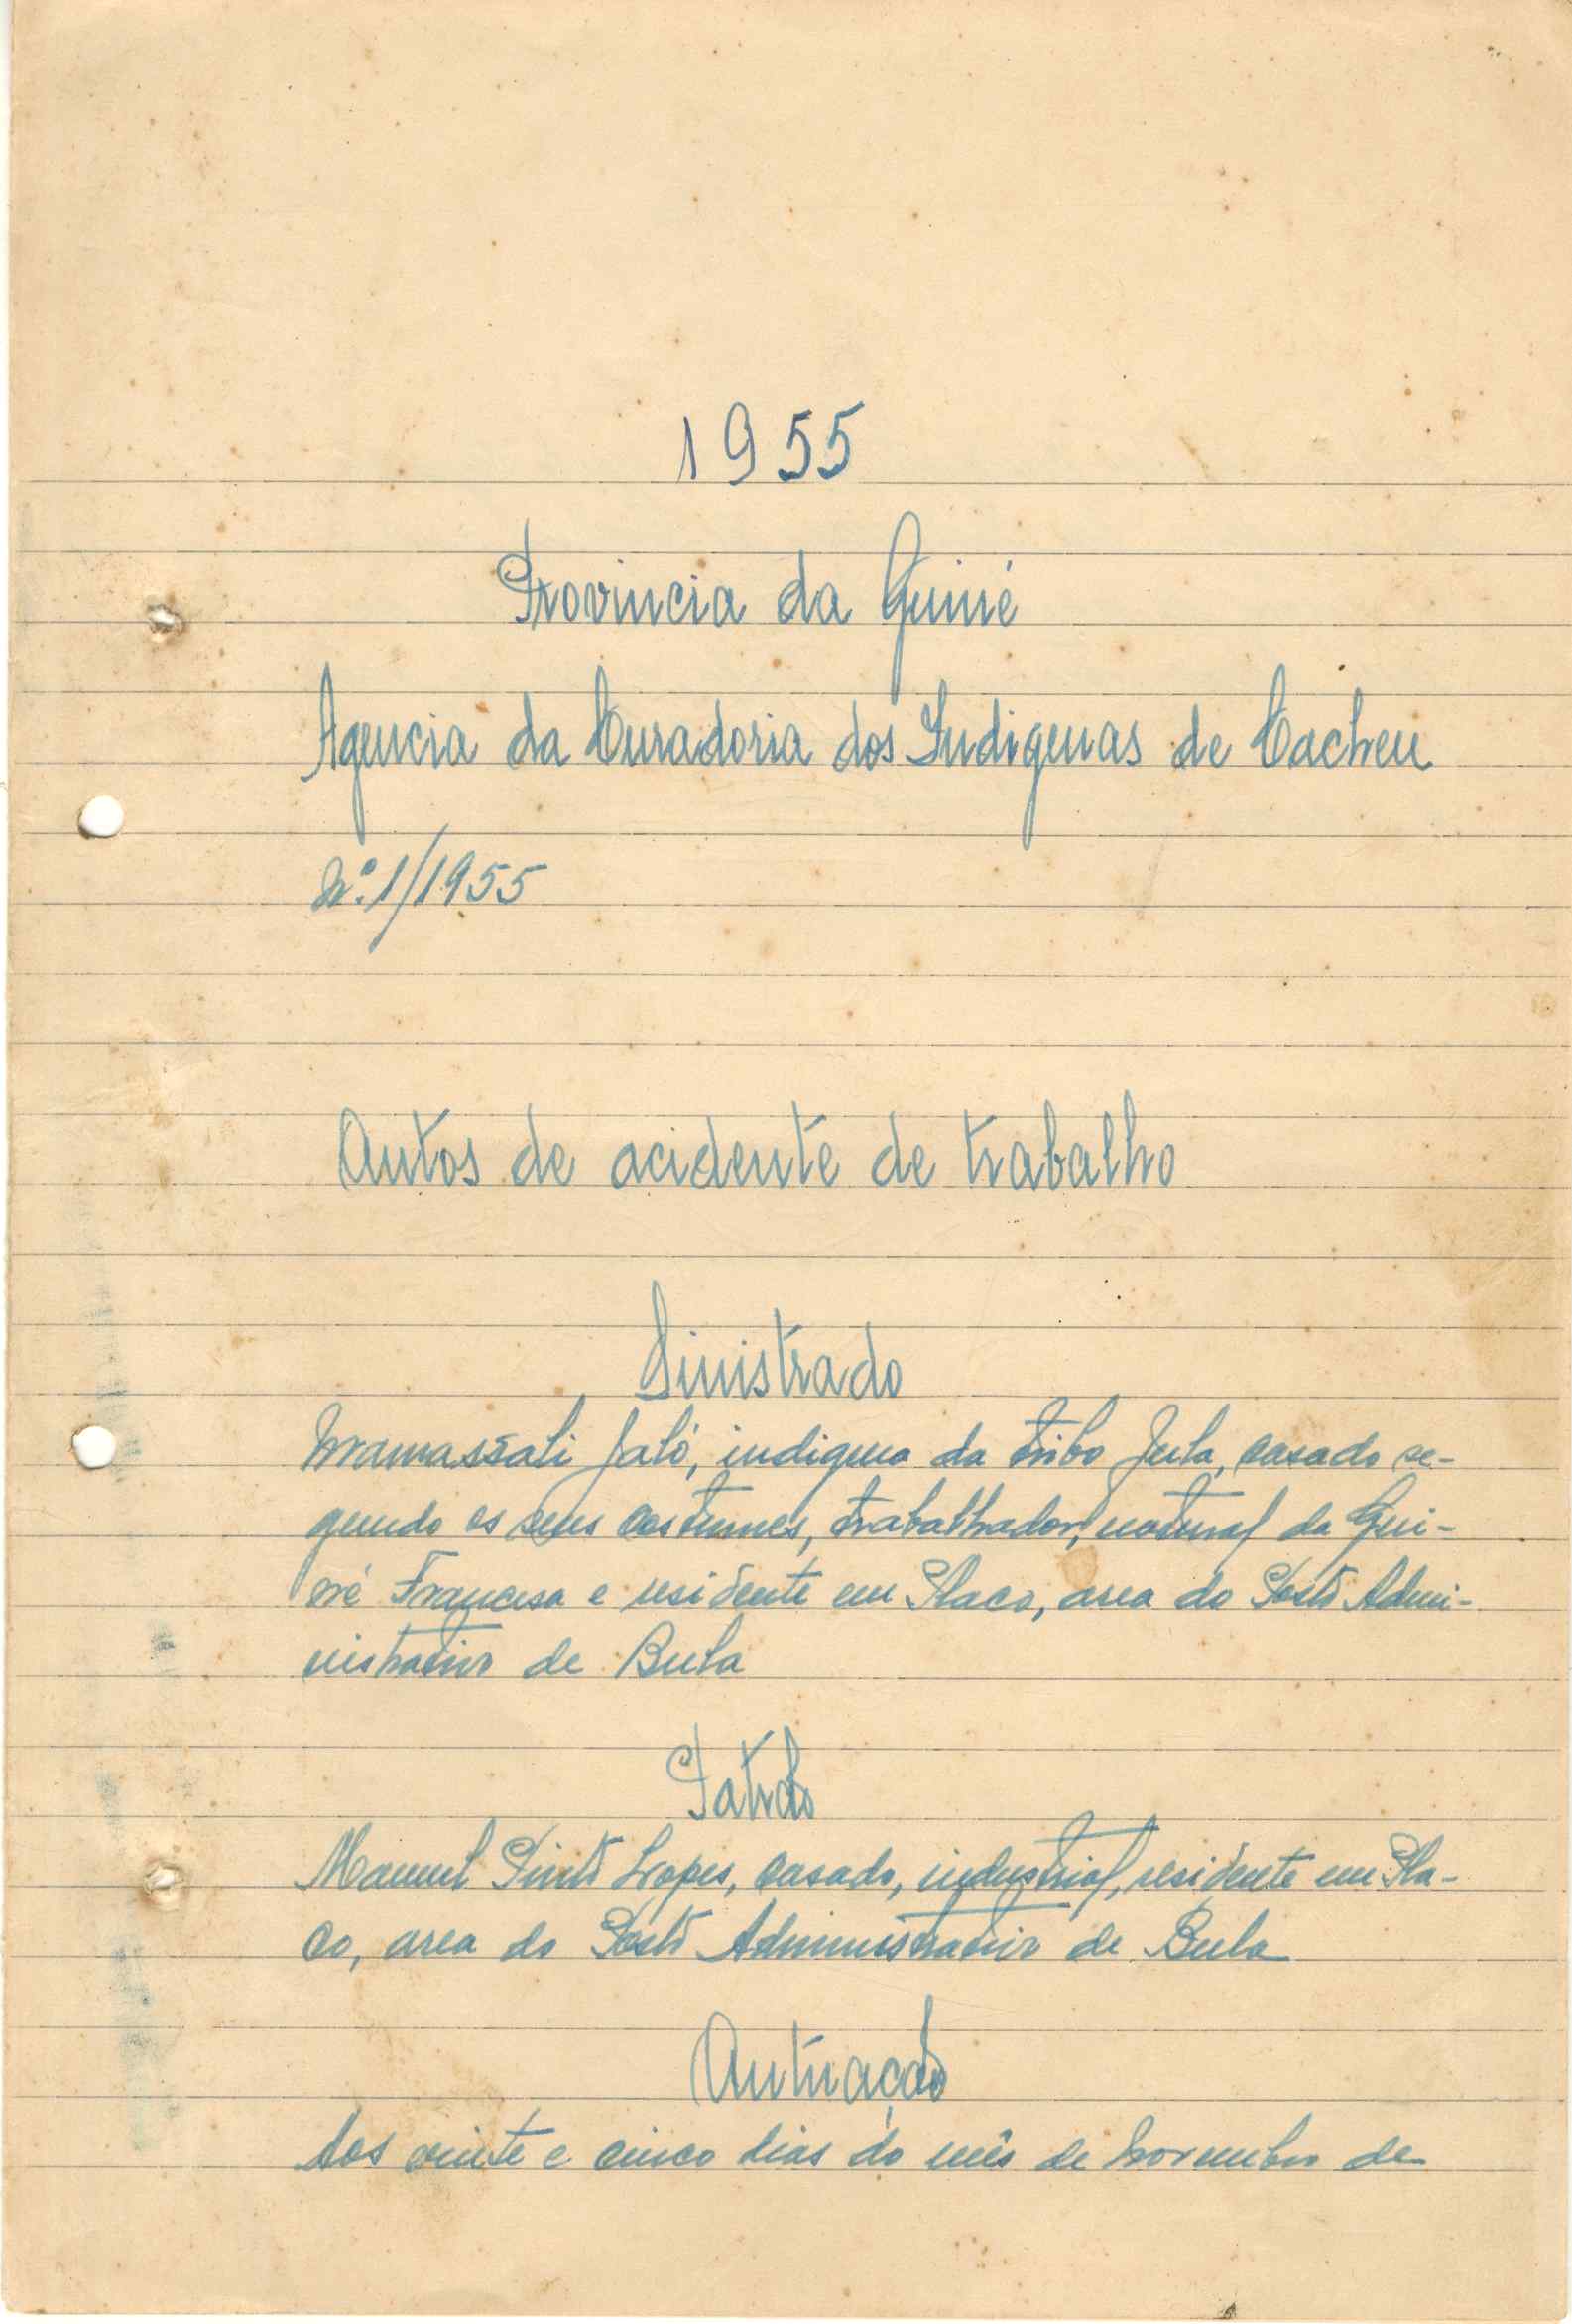 1955
Provincia da Guiné
Agencia da Curadoria dos Indigenas de Cacheu
Nº 1/1955
Autos de acidente de trabalho
Sinistrado
Mamassali Jaló, indigena da tribo Fula, casado se-
gundo os seus costumes, trabalhador, natural da Gui-
né Francesa e residente em Placo, area do Posto Admi-
nistrativo de Bula
Patrão
Manuel Pinto Lopes, casado, industrial, residente em Pla-
co, area do Posto Administrativo de Bula
Autuação
Aos vinte e cinco dias do mês de Novembro de